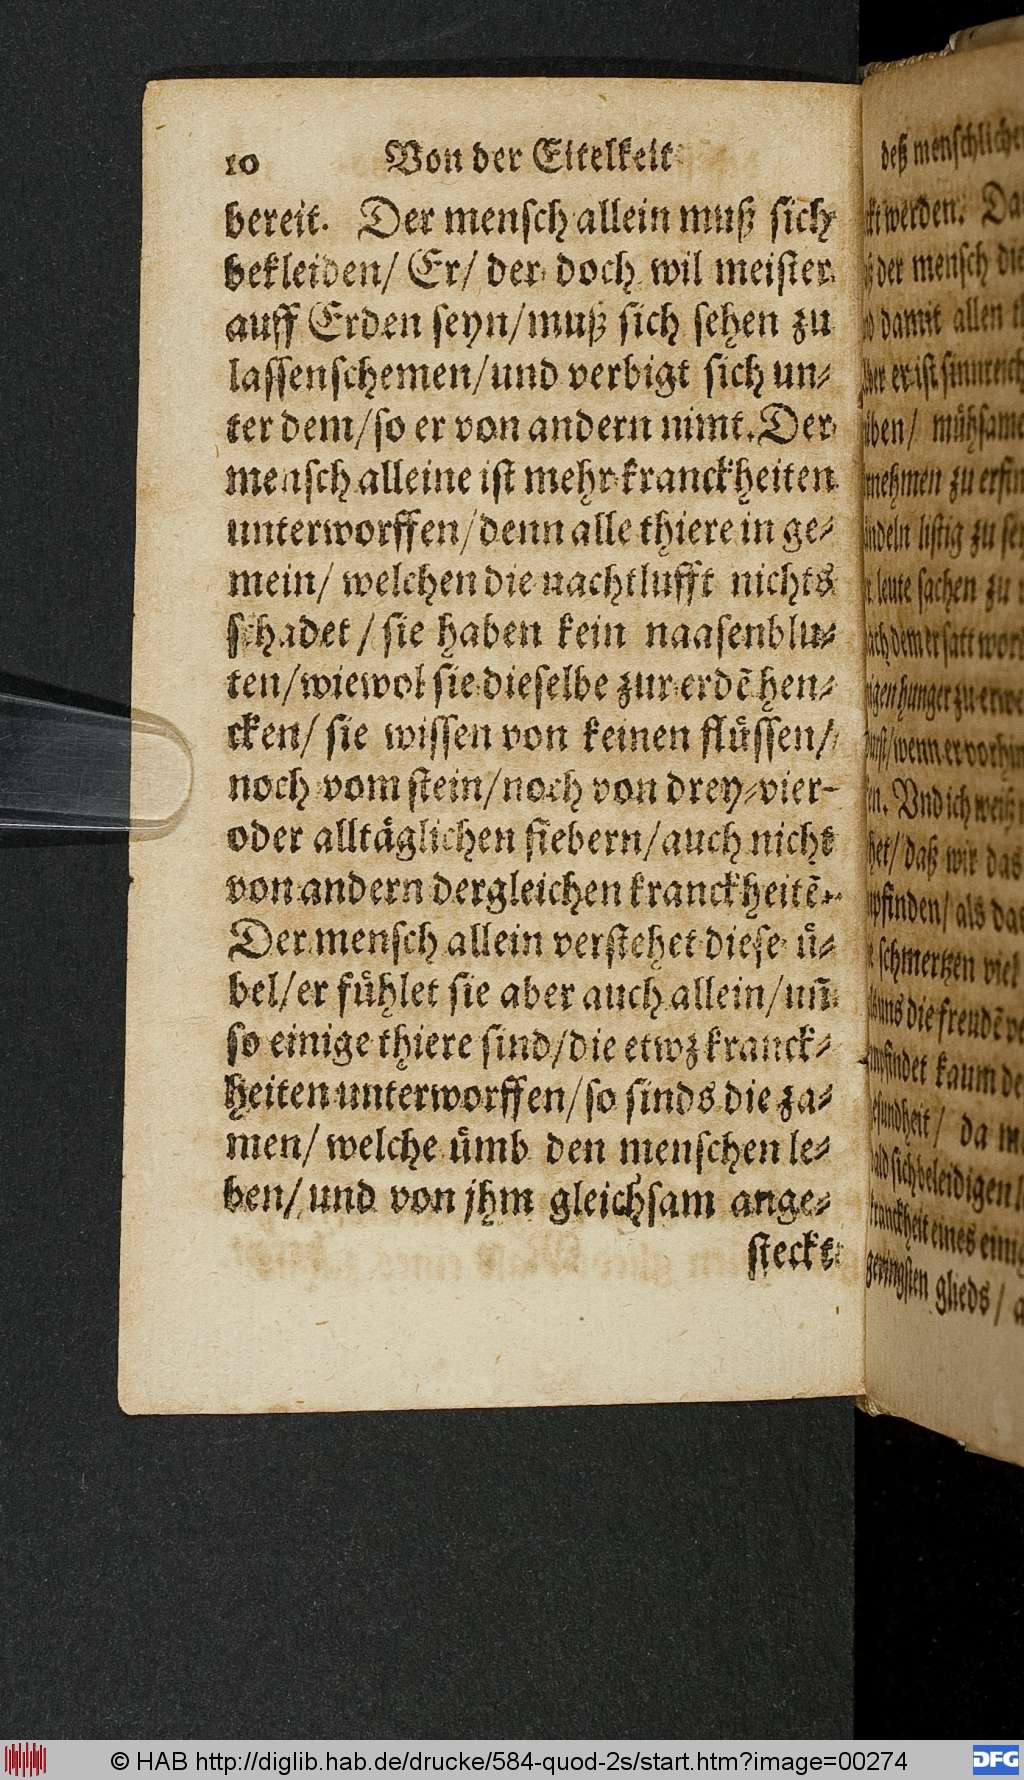 10 Von der Eitelkeit
bereit. Der mensch allein muß sich
bekleiden/ Er/ der doch wil meister
auff Erden seyn/muß sich sehen zu
lassen schemen/und verbigt sich un⸗
ter dem/so er von andern nimt. Der
mensch alleine ist mehr kranckheiten
unterworffen/denn alle thiere in ge⸗
mein/ welchen die nachtlufft nichts
schadet / sie haben kein naasenblu⸗
ten/wiewol sie dieselbe zur erdẽ hen⸗
cken/ sie wissen von keinen flüssen/
noch vom stein/noch von drey⸗vier⸗
oder alltäglichen fiebern/auch nicht
von andern dergleichen kranckheitẽ.
Der mensch allein verstehet diese ü⸗
bel/er fühlet sie aber auch allein/uñ
so einige thiere sind/die etwz kranck⸗
heiten unterworffen/so sinds die za⸗
men/ welche ümb den menschen le⸗
ben/ und von jhm gleichsam ange⸗
steckt
deß
werden.
der mensch
damit allen
er ist
ben/
nehmen zu
listig zu
leute sachen zu
hunger zu
wenn er
Und ich weiß
daß wir das
pfinden/ als
schmertzen viel
uns die freudẽ
kaum
da
eines
glieds /
© HAB http://diglib.hab.de/drucke/584-quod-2s/start.htm?image=00274
DFG